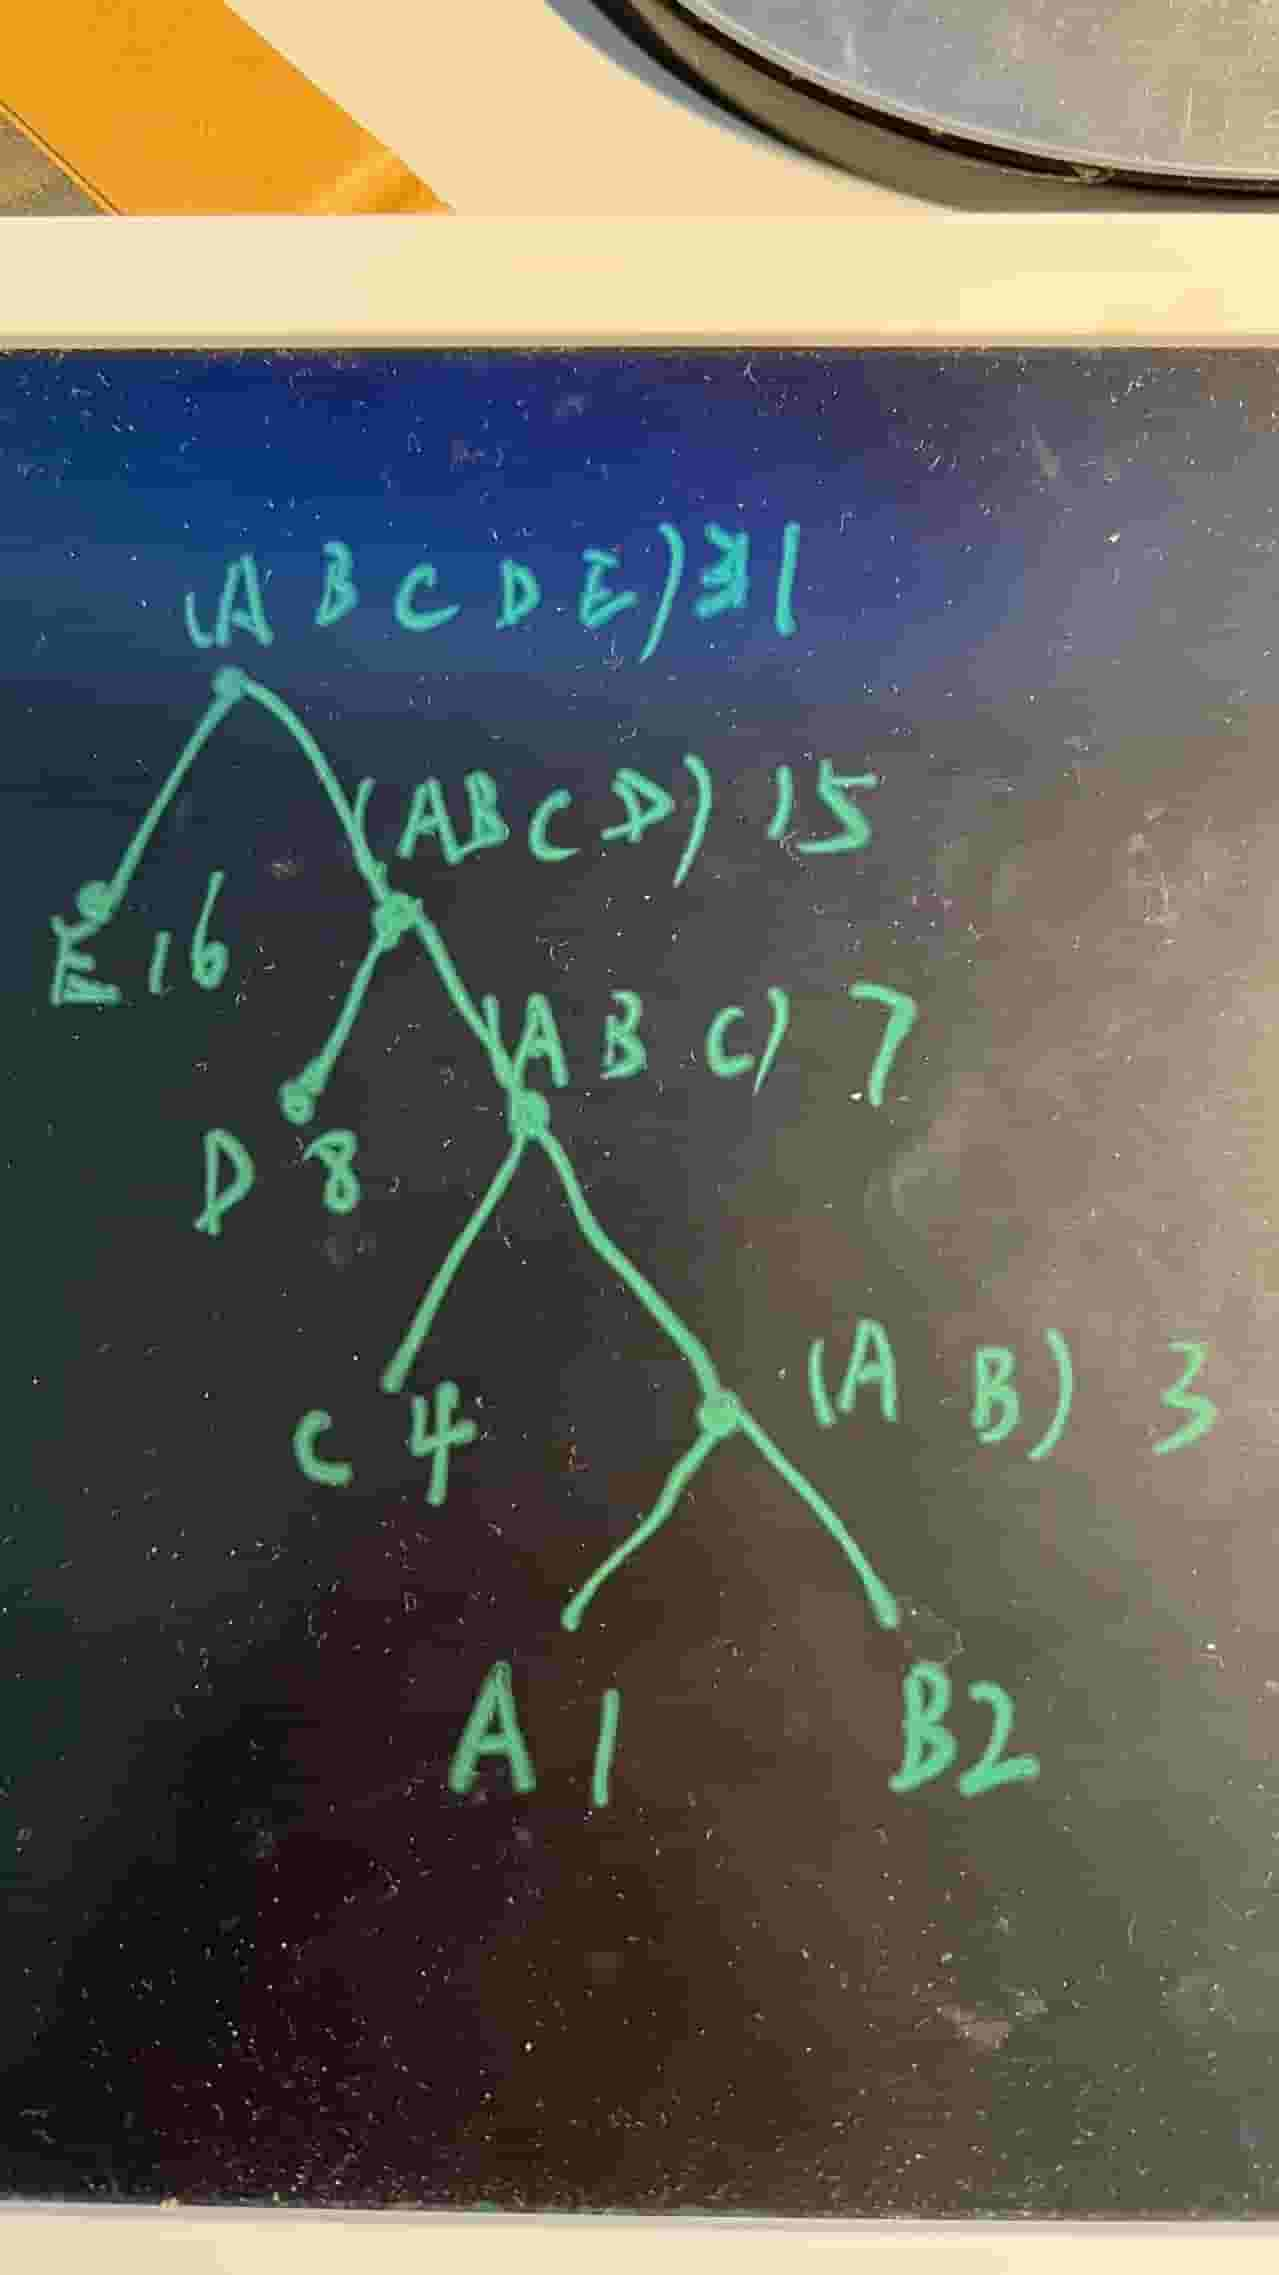 (A B C D E) 31
(ABCD) 15
E 16
(A B C) 7
D 8
(A B) 3
C 4
A 1
B2